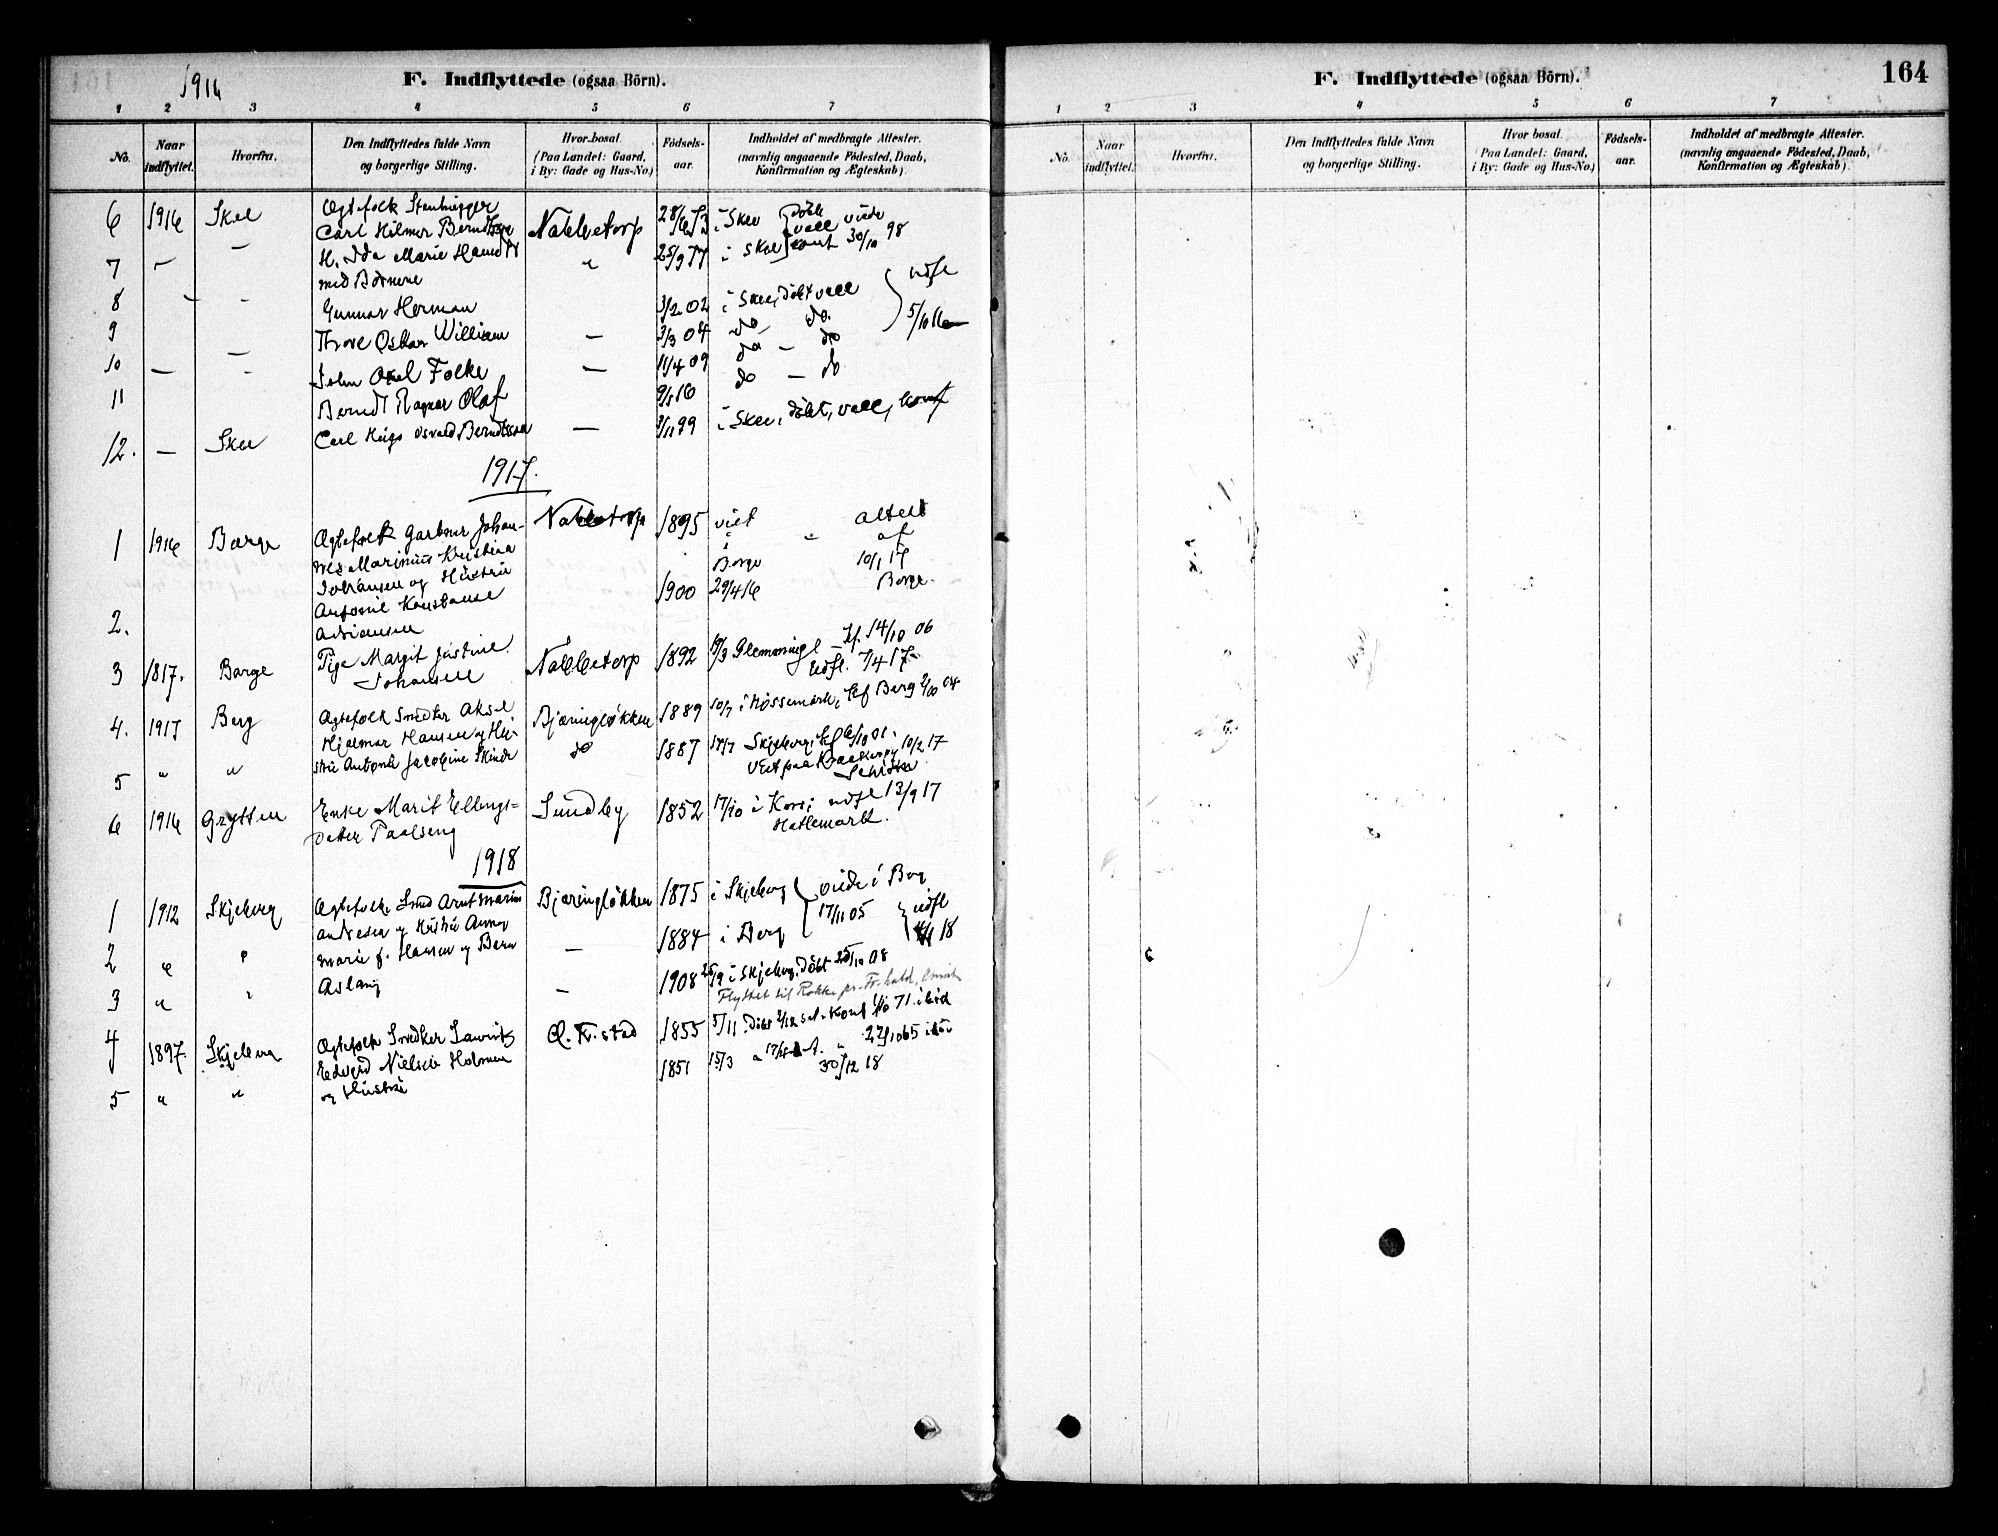 1916
F. Indflyttede (ogsaa Börn).
1 2 3 4 5 6 7
No. Naar indflyttet. Hvorfra. Den Indflyttedes fulde Navn og borgerlige Stilling. Hvor bosat. (Paa Landet: Gaard, i By: Gade og Hus-No.) Födsels-aar. Indholdet af medbragte Attester. (navnlig angaaende Födested, Daab, Konfirmation og Ægteskab).
6 1916 Skee Ægtefolk Stenhugger
Carl Hilmer Berndtsen Nabbetorp 28/6 73 i Skee döbt vacc viede
7 — — H. Ida Marie 25/9 77 i Skee konf 30/10 98
med Börnene
8 — — Gunnar Herman 3/2 02 i Skee, döbt vacc udfl
9 Thore Oskar William — 3/3 04 do do 5/10 16
10 — — John Axel Folke — 11/4 09 do — do
11 Berndt Ragnar Olaf 9/1 16 do — do
12. — Skee Carl Hugo Osvald Berndtsen — 3/11 99 i Skee, döbt, vacc, konf
1917.
1 1916 Borge Ægtefolk Gartner Johan-
nes Marinius Kristian
Johansen og Hustru
Nabbetorp 1895 viet Attest
" " af
Borge 10/1 17
2. Antonie Konstanse
Adriansen
1900 29/4 16 Borge.
3 1817. Borge Pige Margit Justine
Johansen
Nabbetorp 1892 19/3 Glemminge — kf. 14/10 06
Udfl. 7/4 17
4. 1917 Berg Ægtefolk Snedker Aksel
Hjalmar Hansen og Hu-
Bjørnegløkken 1889 10/7 i Røssemark, kf Berg 2/10 04
5 " " stru Antonie Jacobine
do 1887 17/7 Skjeberg, kf 6/10 01.
10/2 17
6 1916 Grytten Enke Marit Ellings-
datter Paalseng
Sundby 1852 17/10 i Kors; udfl 13/9 17
Hatlemark.
1918
1 1912 Skjeberg Ægtefolk Smed Arnt Marin
Andresen og Hustru Anna
Bjørnegløkken 1875 i Skjeberg viede i Berg
17/11 05 udfl
2 " " Marie f. Hansen og Barn — 1884 i Berg 18
3 " " Aslaug — 1908 25/9 i Skjeberg. Döbt 25/10 08
Flyttet til Rokke pr. Fr.hald,
4 1897. Skjeberg Ægtefolk Snedker Laurits
Edvard Nielsen Holmen
Ø. Fr.stad 1855 5/11. Döbt 2/12 s.A. Konf 1/10 71
5 " " og Hustru 1851 15/3 " 17/4 s.A. " 22/10 65
30/12 18
F. Indflyttede (ogsaa Börn).
164
1 2 3 4 5 6 7
No. Naar indflyttet. Hvorfra. Den Indflyttedes fulde Navn og borgerlige Stilling. Hvor bosat. (Paa Landet: Gaard, i By: Gade og Hus-No.) Födsels-aar. Indholdet af medbragte Attester. (navnlig angaaende Födested, Daab, Konfirmation og Ægteskab).